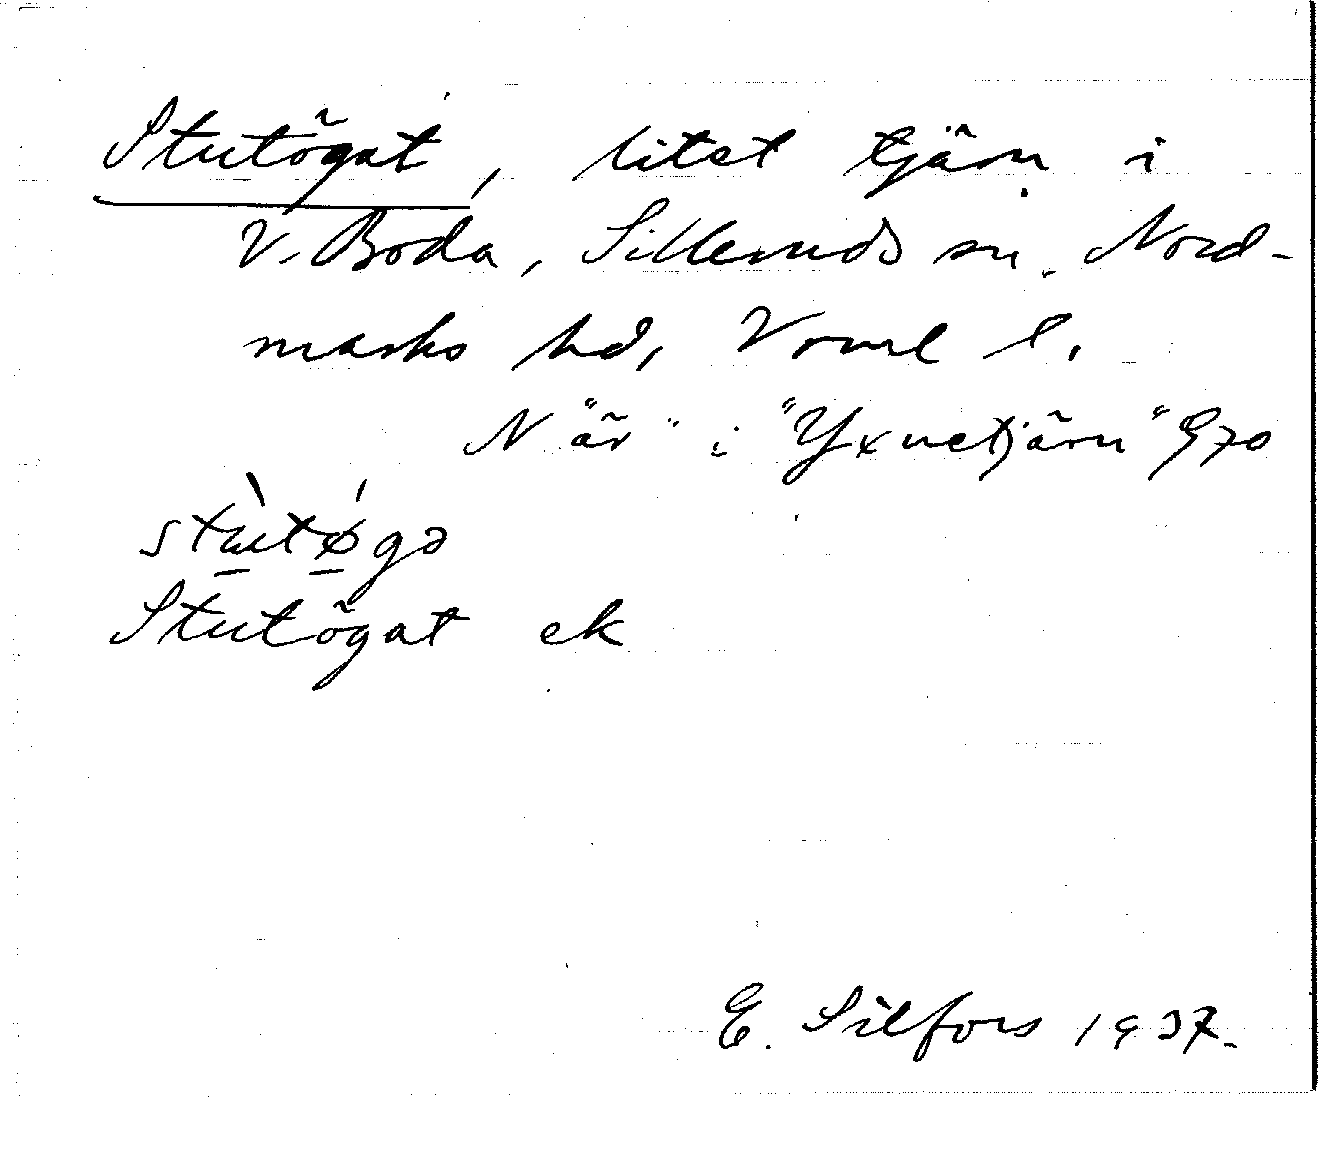 Stutögat, litet tjärn i
V. Boda, Silleruds sn. Nord-
marks hd, Vrml l.
N "är" i "Yxnetjärn" G70
stu̠tø̠gə
Stutögat ek
E. Silfors 1937.